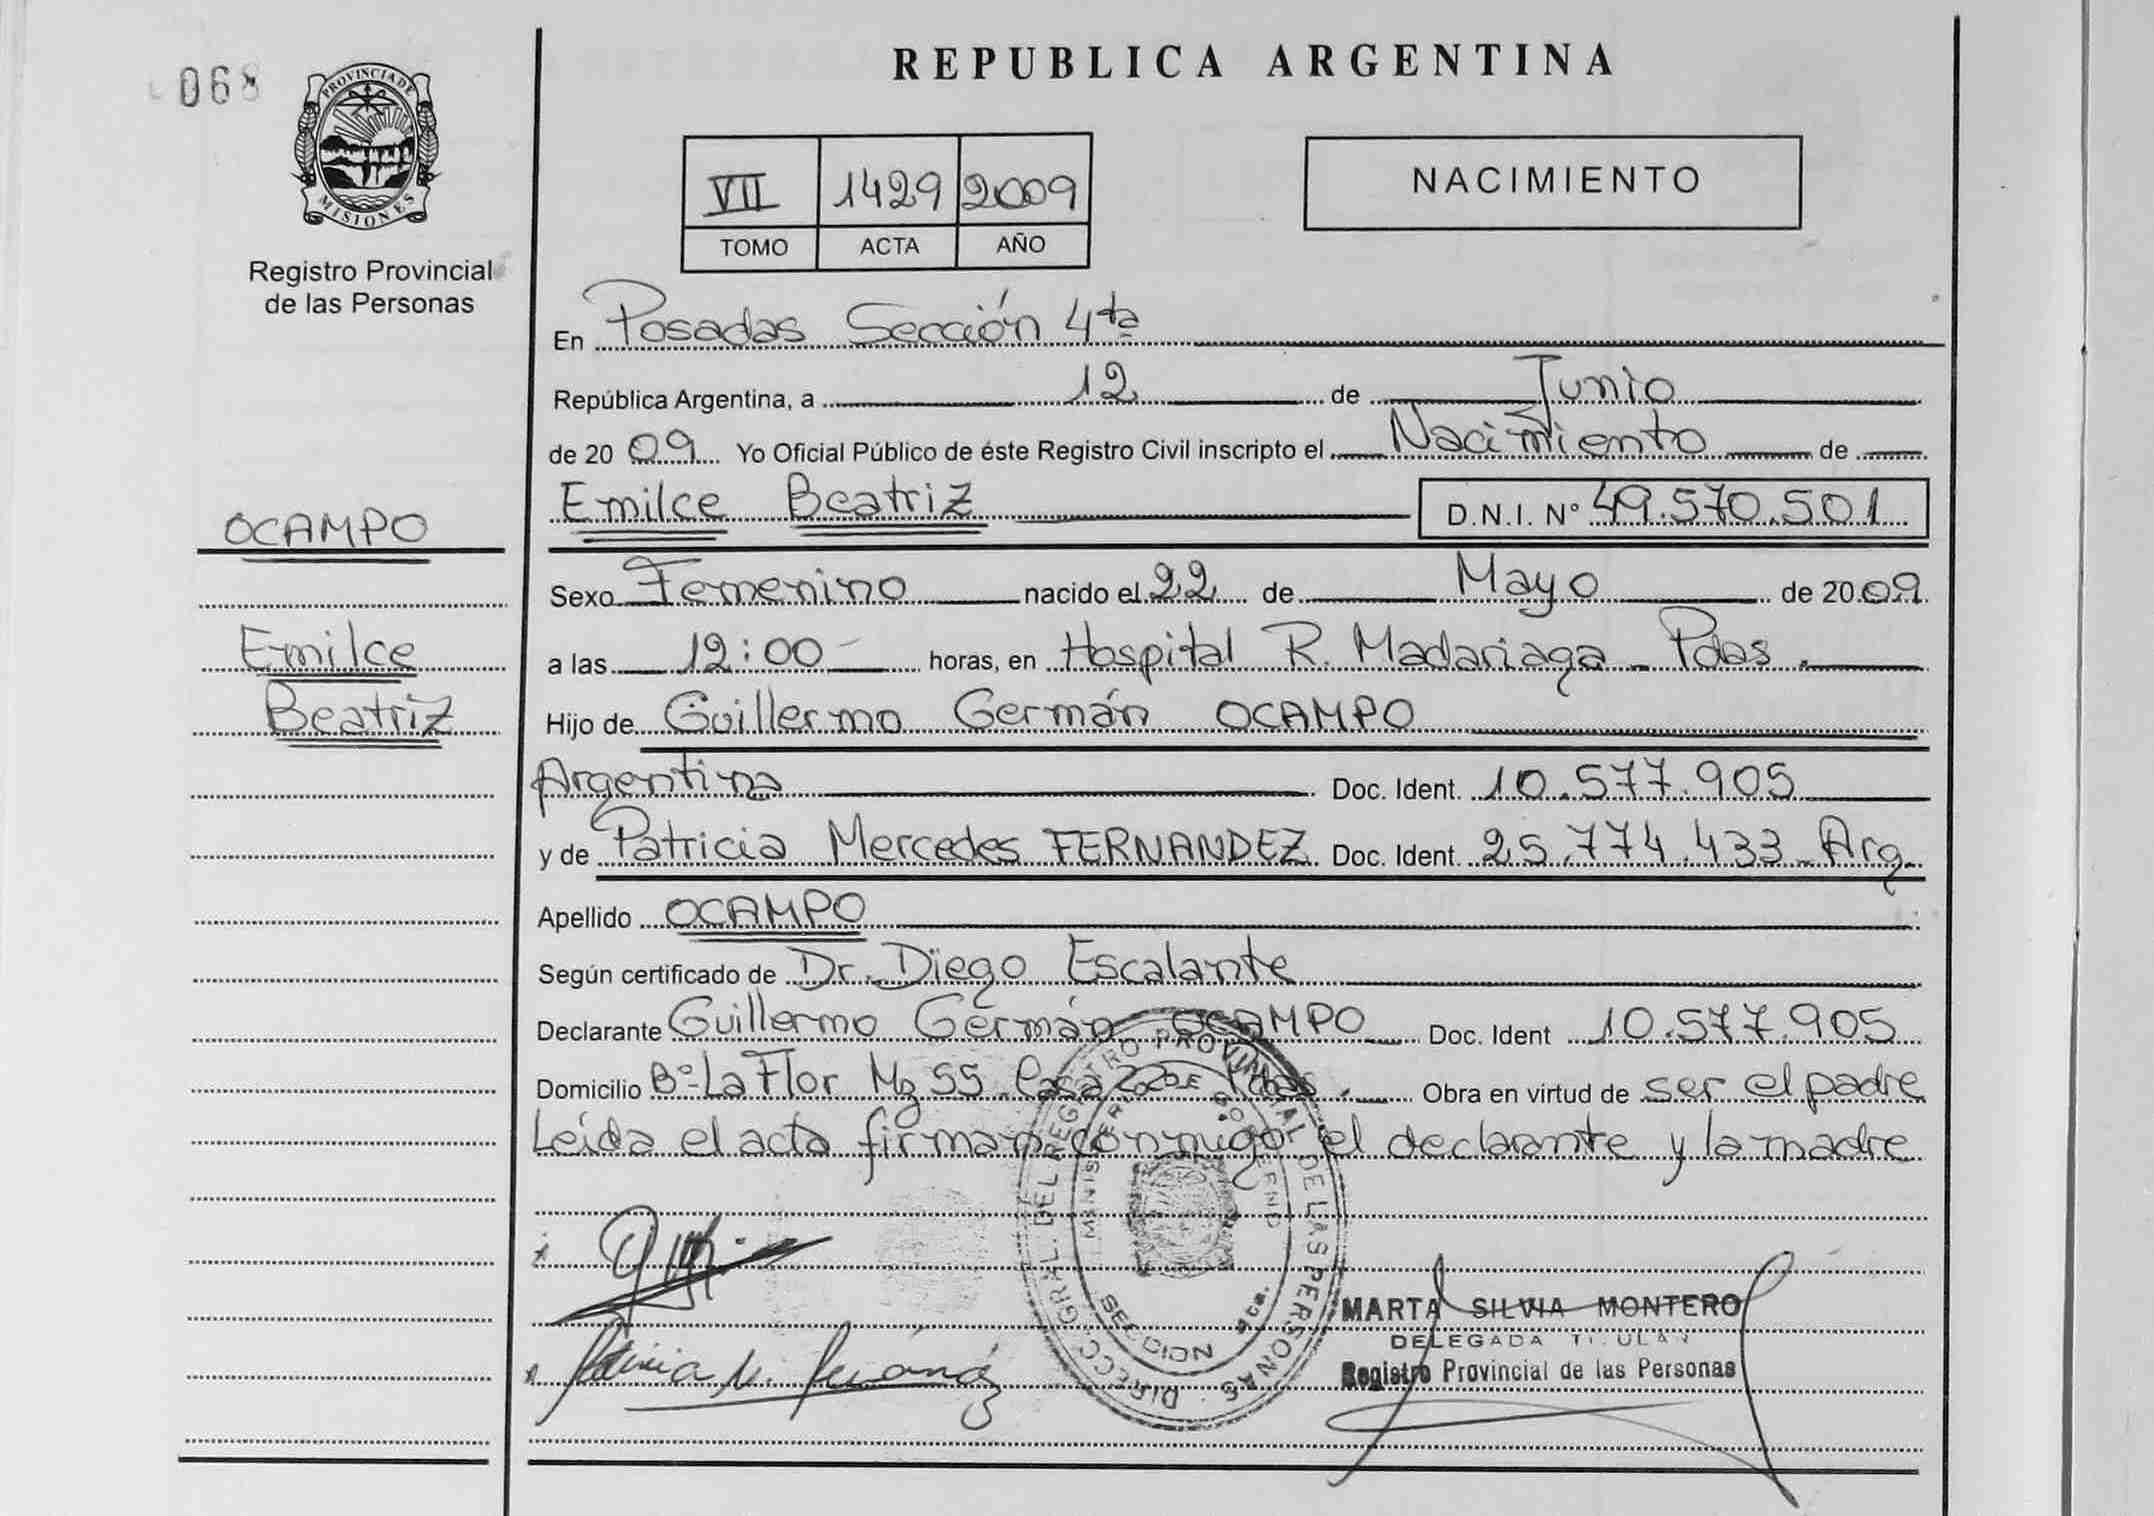 068
PROVINCIA DE
MISIONES
Registro Provincial
de las Personas
REPUBLICA ARGENTINA
VII 1429 2009
TOMO ACTA AÑO
NACIMIENTO
En Posadas Sección 4ta
República Argentina, a 12 de Junio
de 20 09 Yo Oficial Público de éste Registro Civil inscripto el Nacimiento de
Emilce Beatriz D.N.I. N° 49.570.501
OCAMPO
Emilce
Beatriz
Sexo Femenino nacido el 22 de Mayo de 20 09
a las 12:00 horas, en Hospital R. Madariaga - Pdas.
Hijo de Guillermo Germán OCAMPO
Argentina Doc. Ident. 10.577.905
y de Patricia Mercedes FERNANDEZ Doc. Ident. 25.774.433 - Arg.
Apellido OCAMPO
Según certificado de Dr. Diego Escalante
Declarante Guillermo Germán OCAMPO Doc. Ident 10.577.905
Domicilio B° La Flor Mz 55 Casa 22 Pdas. Obra en virtud de ser el padre
Leída el acta firman conmigo el declarante y la madre
DIRECC. GRAL. DEL REGISTRO PROVINCIAL DE LAS PERSONAS
MINISTERIO DE GOBIERNO
SECCION 4ta.
MARTA SILVIA MONTERO
DELEGADA TITULAR
Registro Provincial de las Personas